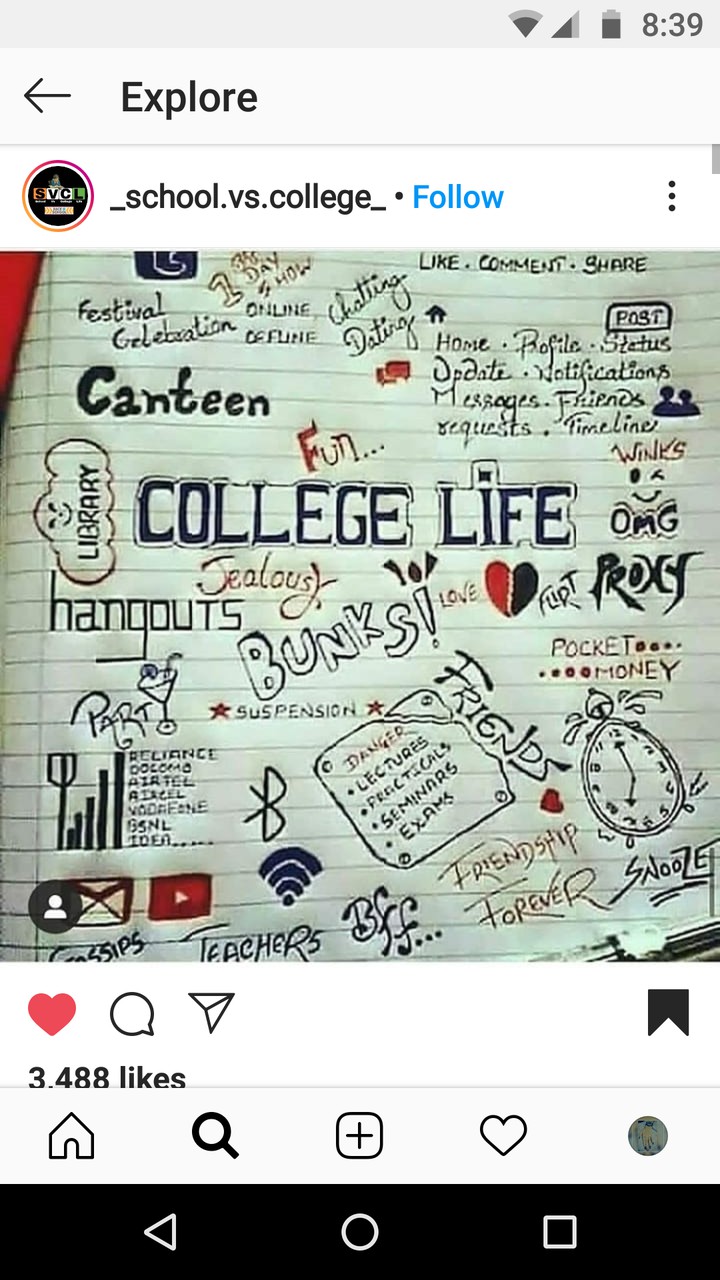 8:39
Explore
_school.vs.college_ • Follow
LIKE . COMMENT . SHARE
DAY
SHOW
Festival
Celebration
ONLINE
OFFLINE
Chatting
Dating
POST
Home . Profile . Status
Update . Notifications
Messages . Friends
requests . Timeline
Canteen
Fun...
WINKS
LIBRARY
COLLEGE LIFE
OMG
Jealousy
hangouts
BUNKS!
LOVE
FLIRT
PROXY
POCKET
MONEY
PARTY
SUSPENSION
FRIENDS
DANGER
• LECTURES
• PRACTICALS
• SEMINARS
• EXAMS
RELIANCE
DOCOMO
AIRTEL
AIRCEL
VODAFONE
BSNL
IDEA......
FRIENDSHIP
FOREVER
SNOOZE
Bff...
GOSSIPS
TEACHERS
3,488 likes